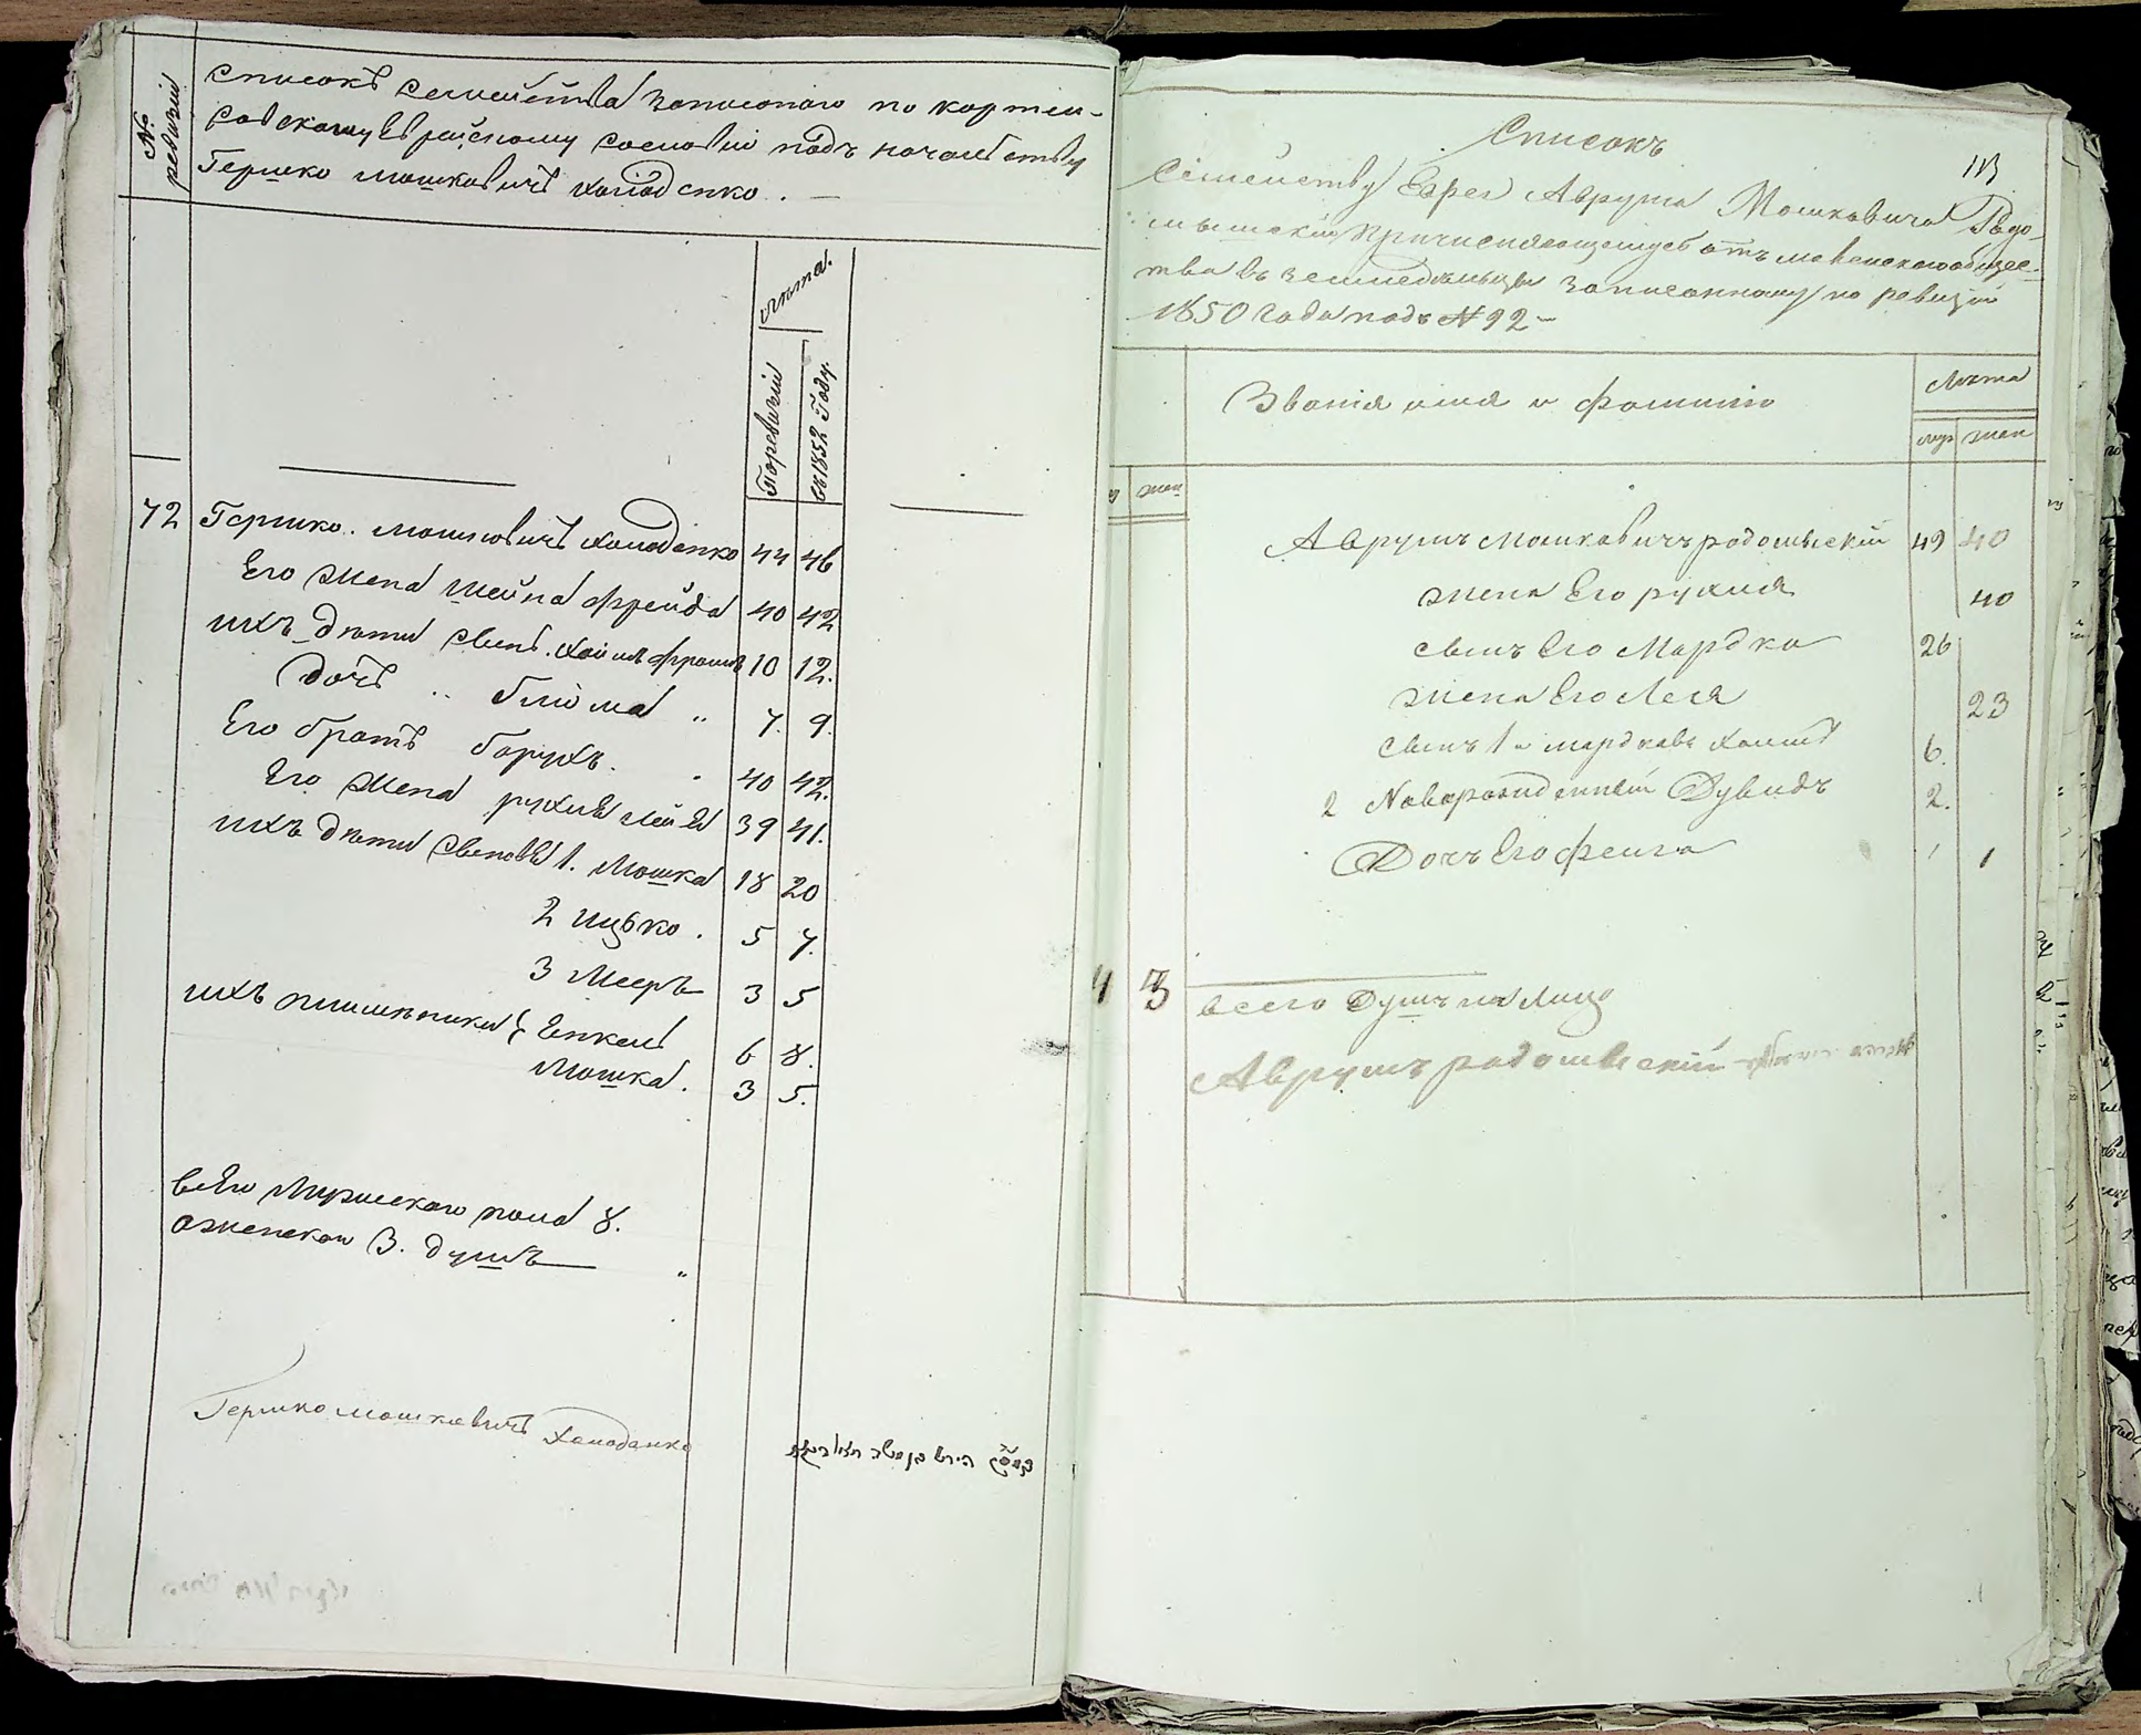 № ревизіи
Списокъ Семейства Записоного по кортеи-
совскому Еврейскому Сословію подъ началствы
Гершко Мошковичъ Холоденко. —
лѣта.
По ревизіи
въ 1852 Году.
72 Гершко. Мошковичъ Холоденко 44 46
Его Жена Шейна Фрейда 40 42
ихъ дѣти Сынъ. Хаимъ Фроимъ 10 12.
дочь „ Блюма „ 7. 9.
Его братъ Борухъ. 40 42.
Его Жена Рухля Лея 39 41.
ихъ дѣти Сыновья 1. Мошка 18 20
2 Ицько. 5 7.
3 Мееръ 3 5
ихъ племѣники { Янкель 6 8.
Мошка. 3 5.
всѣго Мужескаго пола 8.
а женскаго 3. душъ „
Гершко Мошковичъ Холоденко
113
Списокъ
Семейству Еврея Аврума Мошковича Радо-
мысскій Причисляющемусѣ отъ обще-
тва въ Земледѣльцы Записанному по ревизіи
1850 Года подъ № 92 —
Званія имя и фомилію
Лѣта
муж жен
жен
Аврумъ Мошковичъ радомыскій 49 40
жена Его рухля 40
сынъ Его Мордко 26
жена Его Лея 23
сынъ 1 й мордковъ Хаимъ 6.
2 Новорожденный Дувидъ 2.
Дочъ Его Феига 1 1
4 3 всего Душъ на Лицо
Аврумъ радомысскій